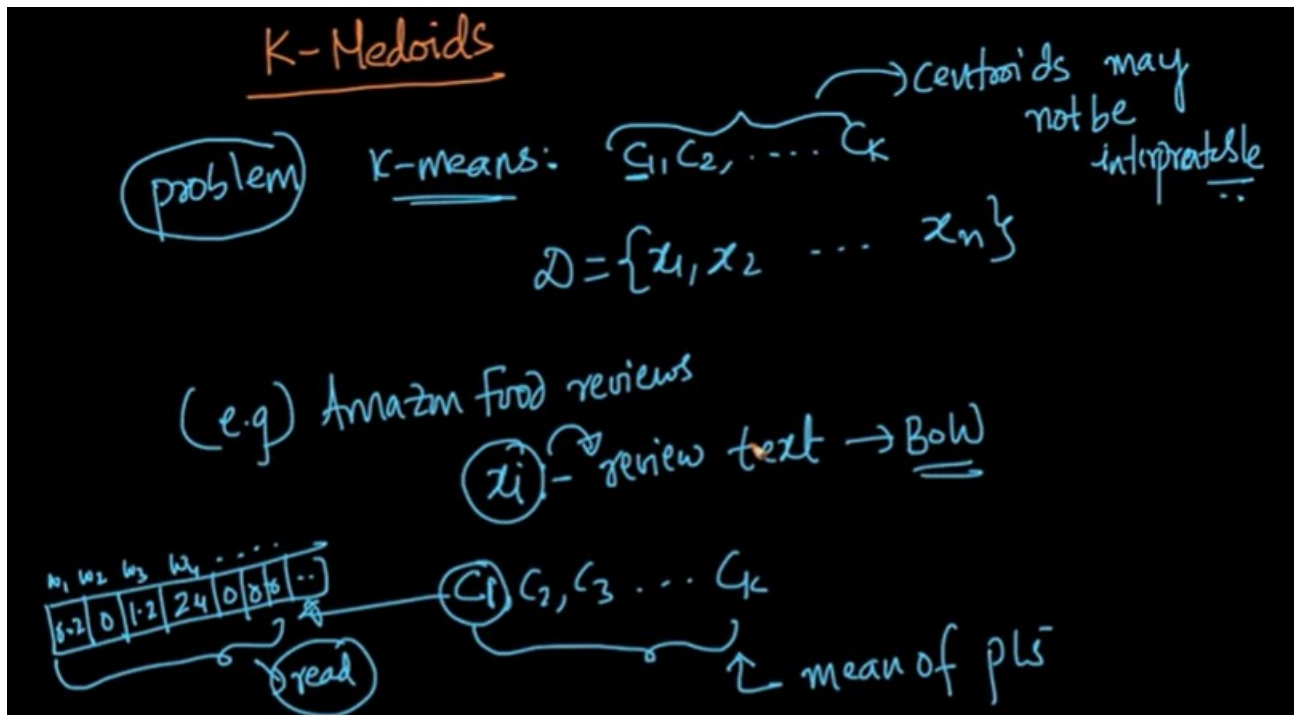 K-Medoids
problem K-means: C1, C2, .... CK → centroids may
not be
interpretable
D = {x1, x2 ... xn}
(e.g) Amazon food reviews
xi - review text → BOW
w1 w2 w3 w4 ....
0 1.2 24 0 ..
C1, C2, C3 .... CK
read
mean of pts